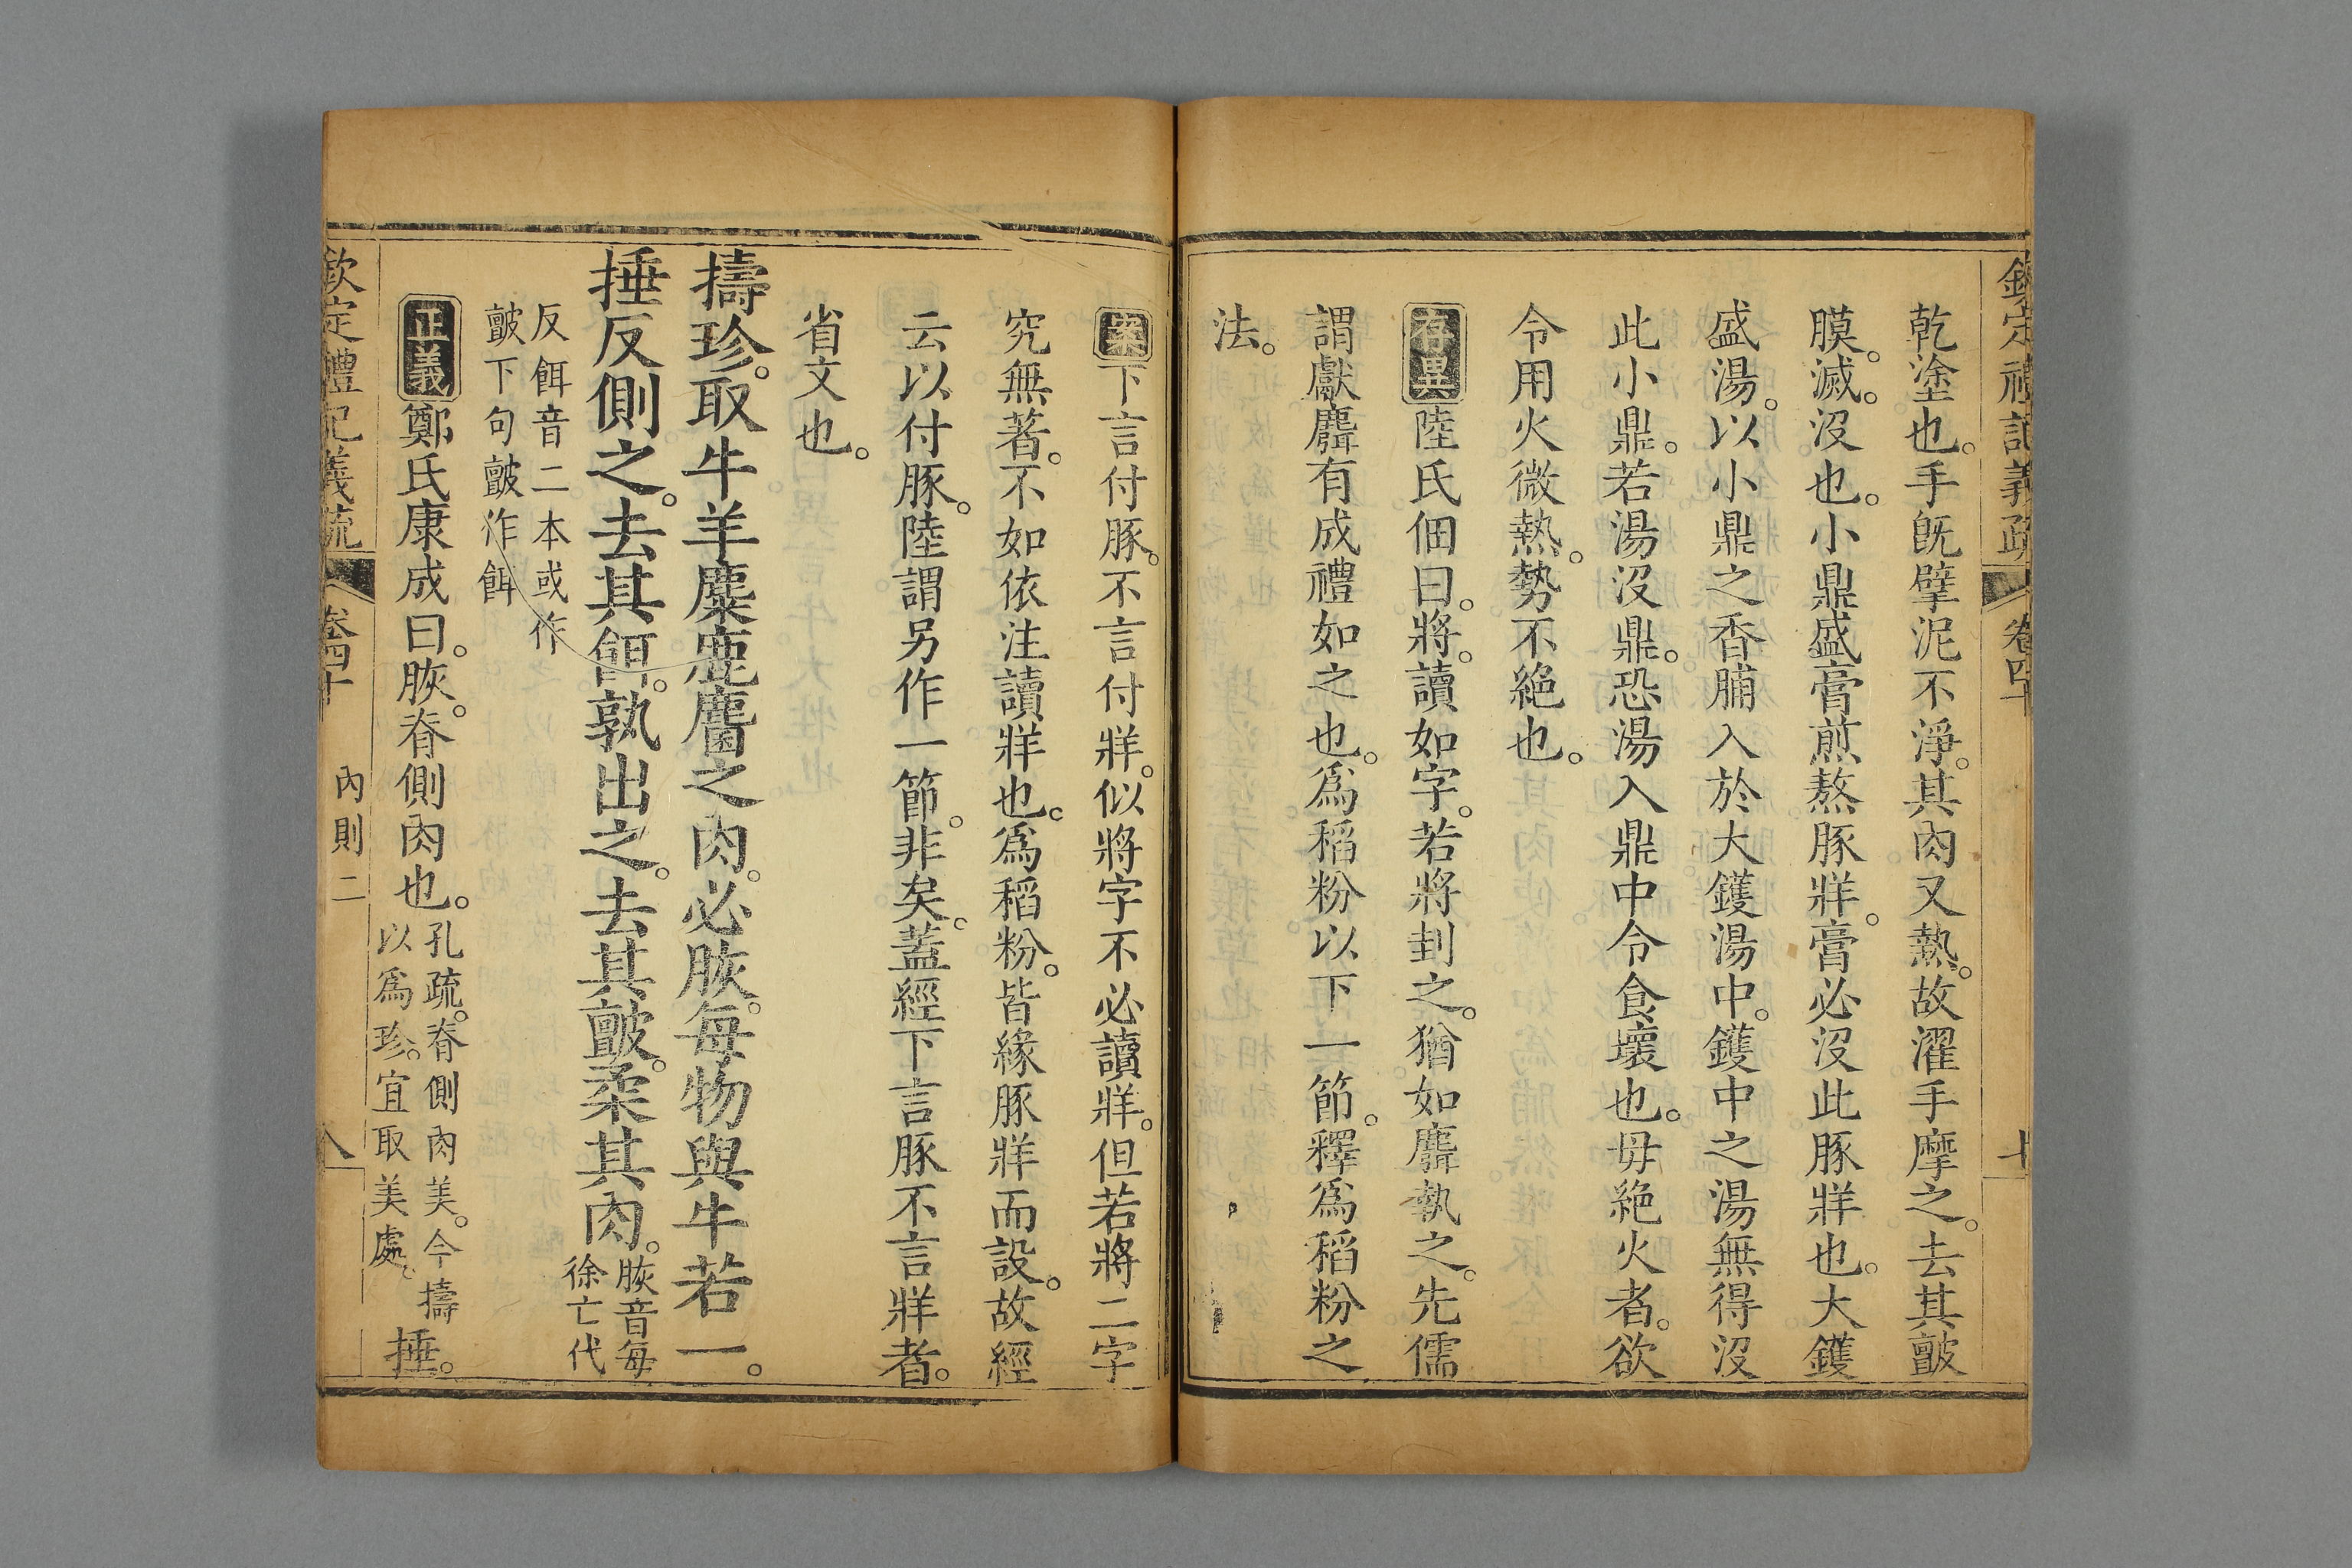 欽定禮記義疏 卷四十 七
乾塗也。手旣擘泥不淨。其肉又熱。故濯手摩之。去其皽
膜。滅。沒也。小鼎盛膏煎熬豚牂。膏必沒此豚牂也。大鑊
盛湯。以小鼎之香脯入於大鑊湯中。鑊中之湯無得沒
此小鼎。若湯沒鼎。恐湯入鼎中令食壞也。毋絶火者。欲
令用火微熱。勢不絶也。
存異陸氏佃曰。將。讀如字。若將封之。猶如麛執之。先儒
謂獻麛有成禮如之也。爲稻粉以下一節。釋爲稻粉之
法。
案下言付豚。不言付牂。似將字不必讀牂。但若將二字
究無著。不如依注讀牂也。爲稻粉。皆緣豚牂而設。故經
云以付豚。陸謂另作一節。非矣。蓋經下言豚不言牂者。
省文也。
擣珍。取牛羊麋鹿麕之肉。必脄。每物與牛若一。
捶反側之。去其餌。孰出之。去其皽。柔其肉。脄音每
徐亡代
反餌音二本或作
皽下句皽作餌
正義鄭氏康成曰。脄。脊側肉也。孔疏。脊側肉美。今擣
以爲珍。宜取美處。捶。
欽定禮記義疏 卷四十 內則二 八